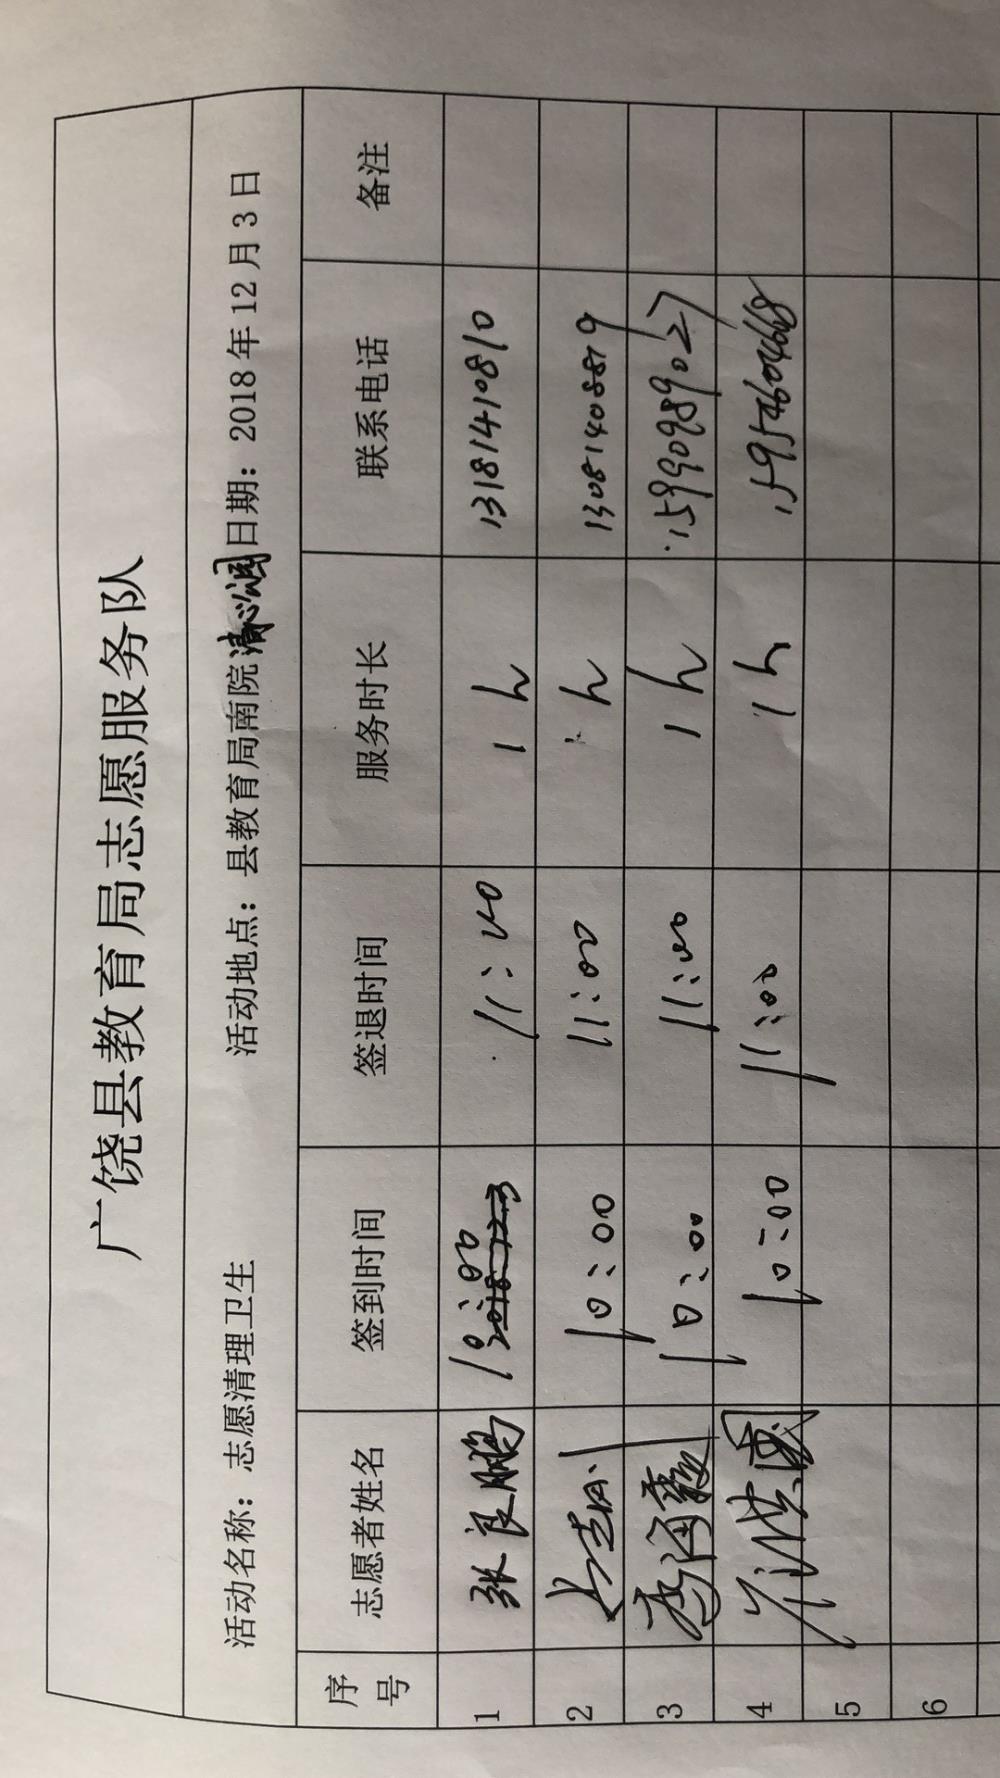 广饶县教育局志愿服务队
活动名称：志愿清理卫生 活动地点：县教育局南院清心润园日期：2018年12月3日
序号 志愿者姓名 签到时间 签退时间 服务时长 联系电话 备注
1 张良鹏 10:00 11:00 1h 13181410810
2 10:00 11:00 1h 13081408819
3 李海毅 10:00 11:00 1h 15990989027
4 10:00 11:00 1h 15954604668
5
6